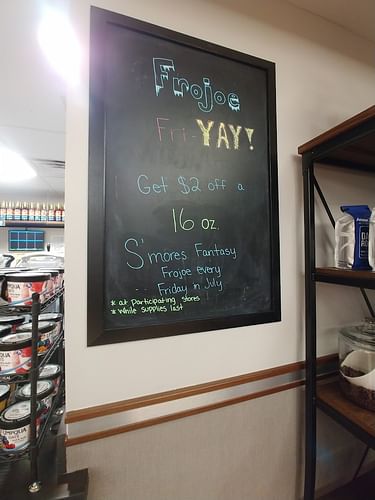 Frojoe
Fri-YAY!
Get $2 off a
16 oz.
S'mores Fantasy
Frojoe every
Friday in July
* at participating stores
* While supplies last
UMPQUA